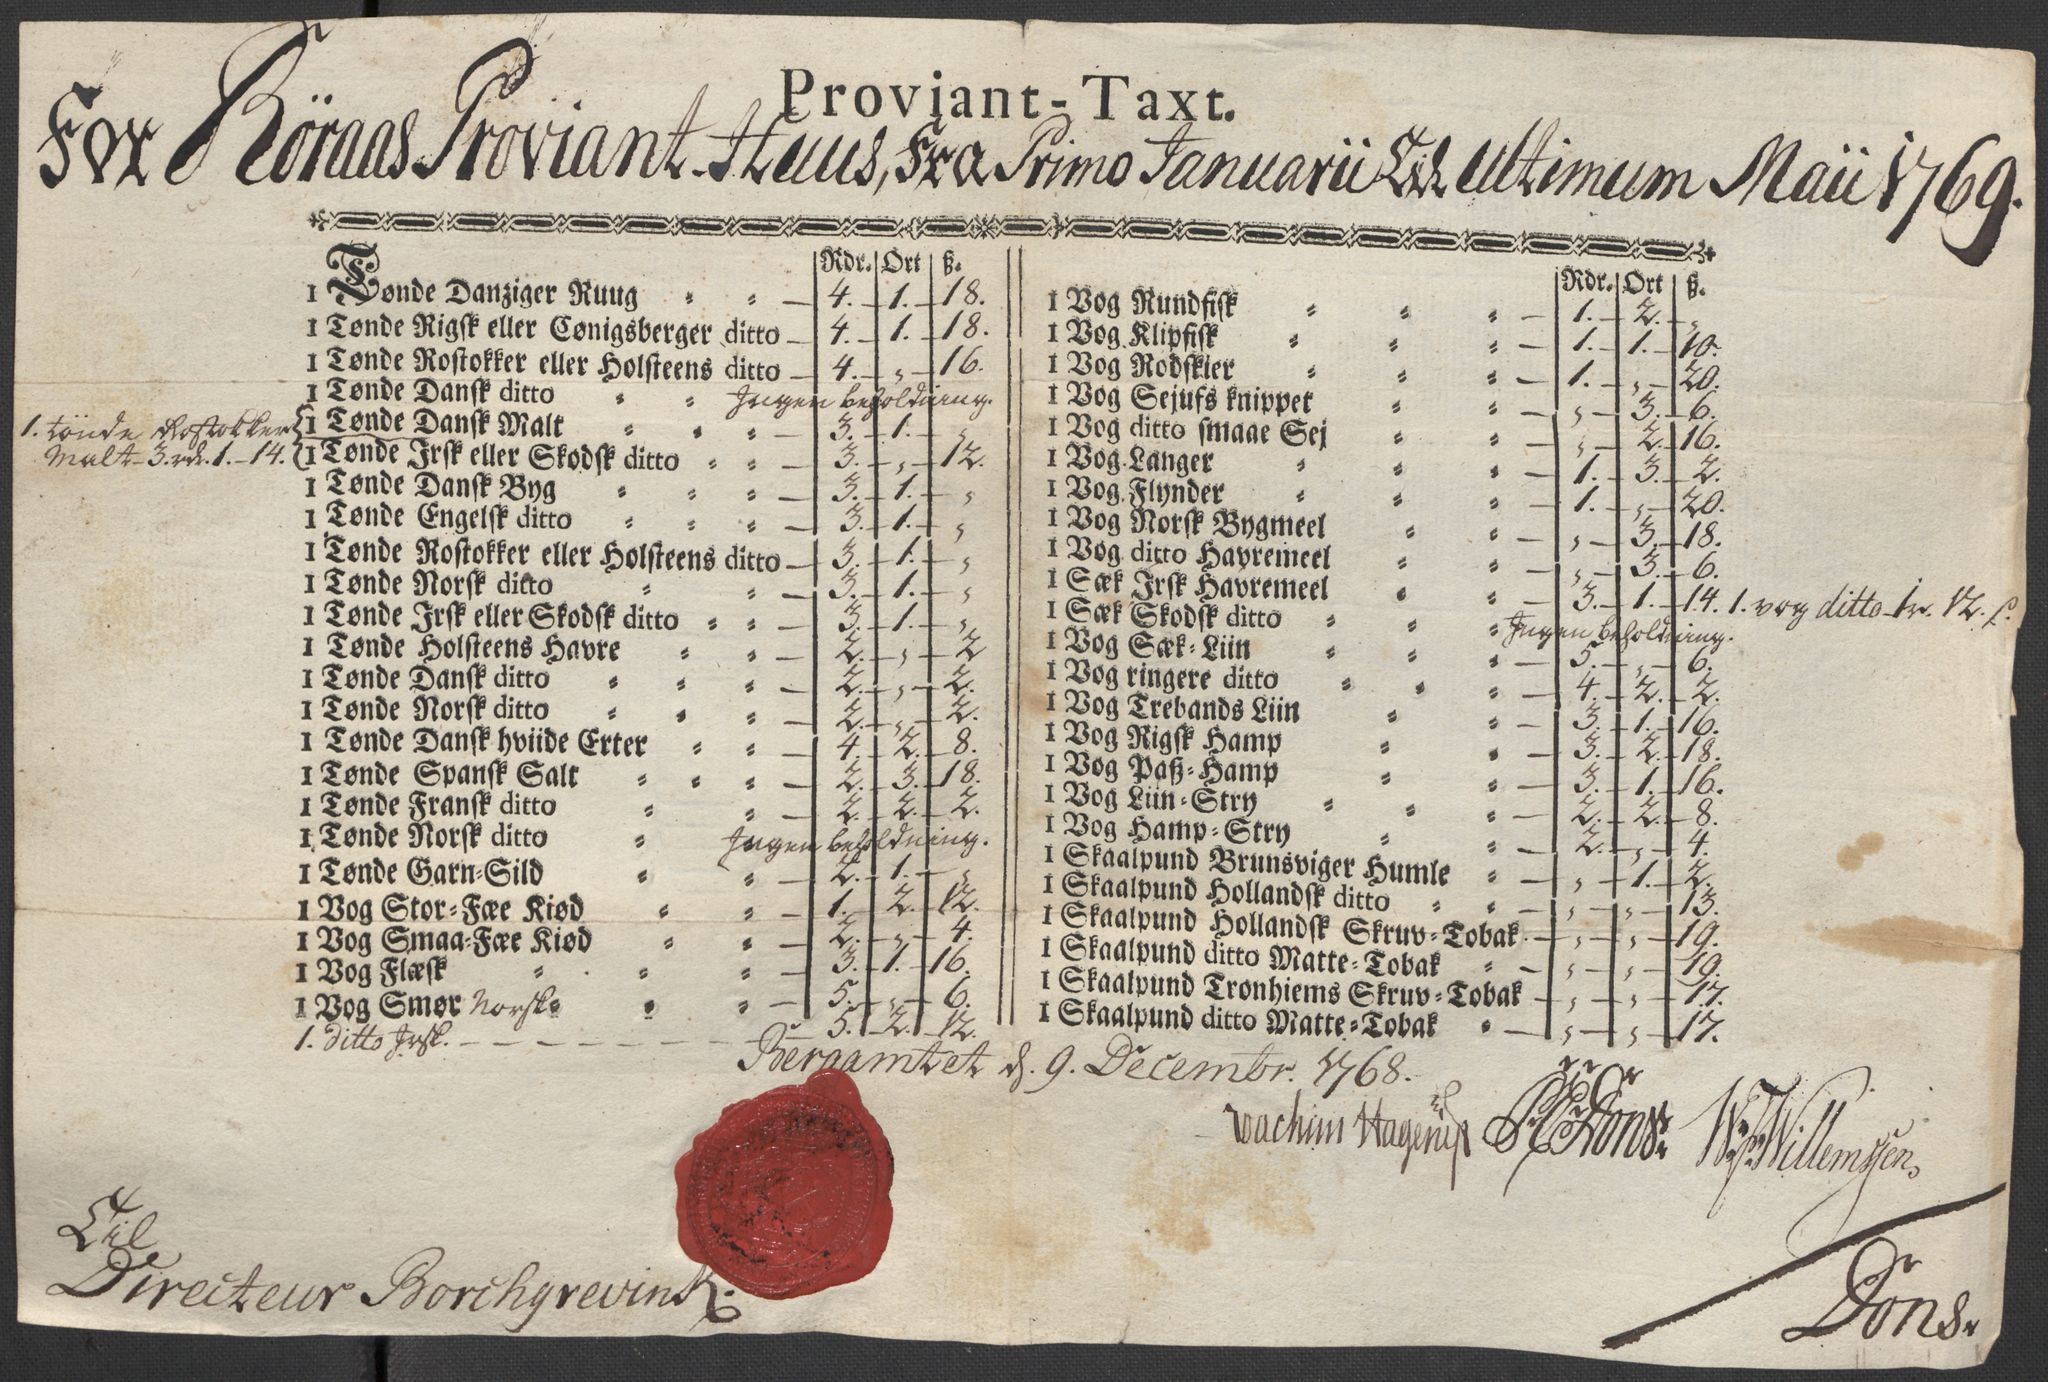 Proviant-Taxt.
For Röraas Proviant-Huus, Fra Primo Januarii Til Ultimum Maii 1769.
Rdr. Ort ß.
1 Tønde Danziger Ruug 4. 1. 18.
1 Tønde Rigsk eller Cønigsberger ditto 4. 1. 18.
1 Tønde Rostokker eller Holsteens ditto 4. „ 16.
1 Tønde Dansk ditto Ingen beholdning.
1 Tønde Dansk Malt 3. 1. „
1. tönde Rostokker Malt 3. rdr. 1. 14.
1 Tønde Irsk eller Skodsk ditto 3. „ 12.
1 Tønde Dansk Byg 3. 1. „
1 Tønde Engelsk ditto 3. 1. „
1 Tønde Rostokker eller Holsteens ditto 3. 1. „
1 Tønde Norsk ditto 3. 1. „
1 Tønde Irsk eller Skodsk ditto 3. 1. „
1 Tønde Holsteens Havre 2. „ 2
1 Tønde Dansk ditto 2. „ 2.
1 Tønde Norsk ditto 2. „ 2.
1 Tønde Dansk hviide Erter 4. 2. 8.
1 Tønde Spansk Salt 2. 3. 18.
1 Tønde Fransk ditto 2. 2. 2.
1 Tønde Norsk ditto Ingen beholdning.
1 Tønde Garn-Sild 2. 1. „
1 Vog Stor-Fæe Kiød 1. 2. 12.
1 Vog Smaa-Fæe Kiød 2. „ 4.
1 Vog Flæsk 3. 1. 16.
1 Vog Smør Norsk 5. „ 6.
1. ditto Irsk. 5. 2. 12.
Rdr. Ort ß.
1 Vog Rundfisk 1. 2. „
1 Vog Klipfisk 1. 1. 10.
1 Vog Rodskier 1. „ 20.
1 Vog Sejufs knippet „ 3. 6.
1 Vog ditto smaae Sej „ 2. 16.
1 Vog Langer 1. 3. 2.
1 Vog Flynder 1. „ 20.
1 Vog Norsk Bygmeel „ 3. 18.
1 Vog ditto Havremeel „ 3. 6.
1 Sæk Irsk Havremeel 3. 1. 14. 1. vog ditto 1 r. 12. ß.
1 Sæk Skodsk ditto Ingen beholdning.
1 Vog Sæk-Liin 5. „ 6.
1 Vog ringere ditto 4. 2. 2.
1 Vog Trebands Liin 3. 1. 16.
1 Vog Rigsk Hamp 3. 2. 18.
1 Vog Paß-Hamp 3. 1. 16.
1 Vog Liin-Stry 2. 2. 8.
1 Vog Hamp-Stry 2. „ 4.
1 Skaalpund Brunsviger Humle „ 1. 2.
1 Skaalpund Hollandsk ditto „ „ 13.
1 Skaalpund Hollandsk Skruv-Tobak „ „ 19.
1 Skaalpund ditto Matte-Tobak „ „ 19.
1 Skaalpund Tronhiems Skruv-Tobak „ „ 17.
1 Skaalpund ditto Matte-Tobak „ „ 17.
Bergamtet d. 9. Decembr. 1768.
Joachim Hagerup Dons W. Willemssen
Til
Directeur Borchgrevink.
Dons